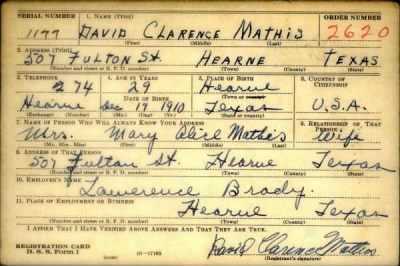 SERIAL NUMBER 1. NAME (Print) ORDER NUMBER
1177 DAVID CLARENCE MATHIS 2620
(First) (Middle) (Last)
2. ADDRESS (Print)
507 FULTON St. HEARNE TEXAS
(Number and street or R. F. D. number) (Town) (County) (State)
3. TELEPHONE 4. AGE IN YEARS 5. PLACE OF BIRTH 6. COUNTRY OF CITIZENSHIP
274 29 Hearne
DATE OF BIRTH (Town or county)
Hearne Dec 19 1910 Texas U.S.A.
(Exchange) (Number) (Mo.) (Day) (Yr.) (State or country)
7. NAME OF PERSON WHO WILL ALWAYS KNOW YOUR ADDRESS 8. RELATIONSHIP OF THAT PERSON
Mrs. Mary Alice Mathis Wife
(Mr., Mrs., Miss) (First) (Middle) (Last)
9. ADDRESS OF THAT PERSON
507 Fulton St. Hearne Texas
(Number and street or R. F. D. number) (Town) (County) (State)
10. EMPLOYER'S NAME
Lawerence Brady.
11. PLACE OF EMPLOYMENT OR BUSINESS
Hearne Texas
(Number and street or R. F. D. number) (Town) (County) (State)
I AFFIRM THAT I HAVE VERIFIED ABOVE ANSWERS AND THAT THEY ARE TRUE.
REGISTRATION CARD
D. S. S. Form 1 David Clarence Mathis
(Registrant's signature)